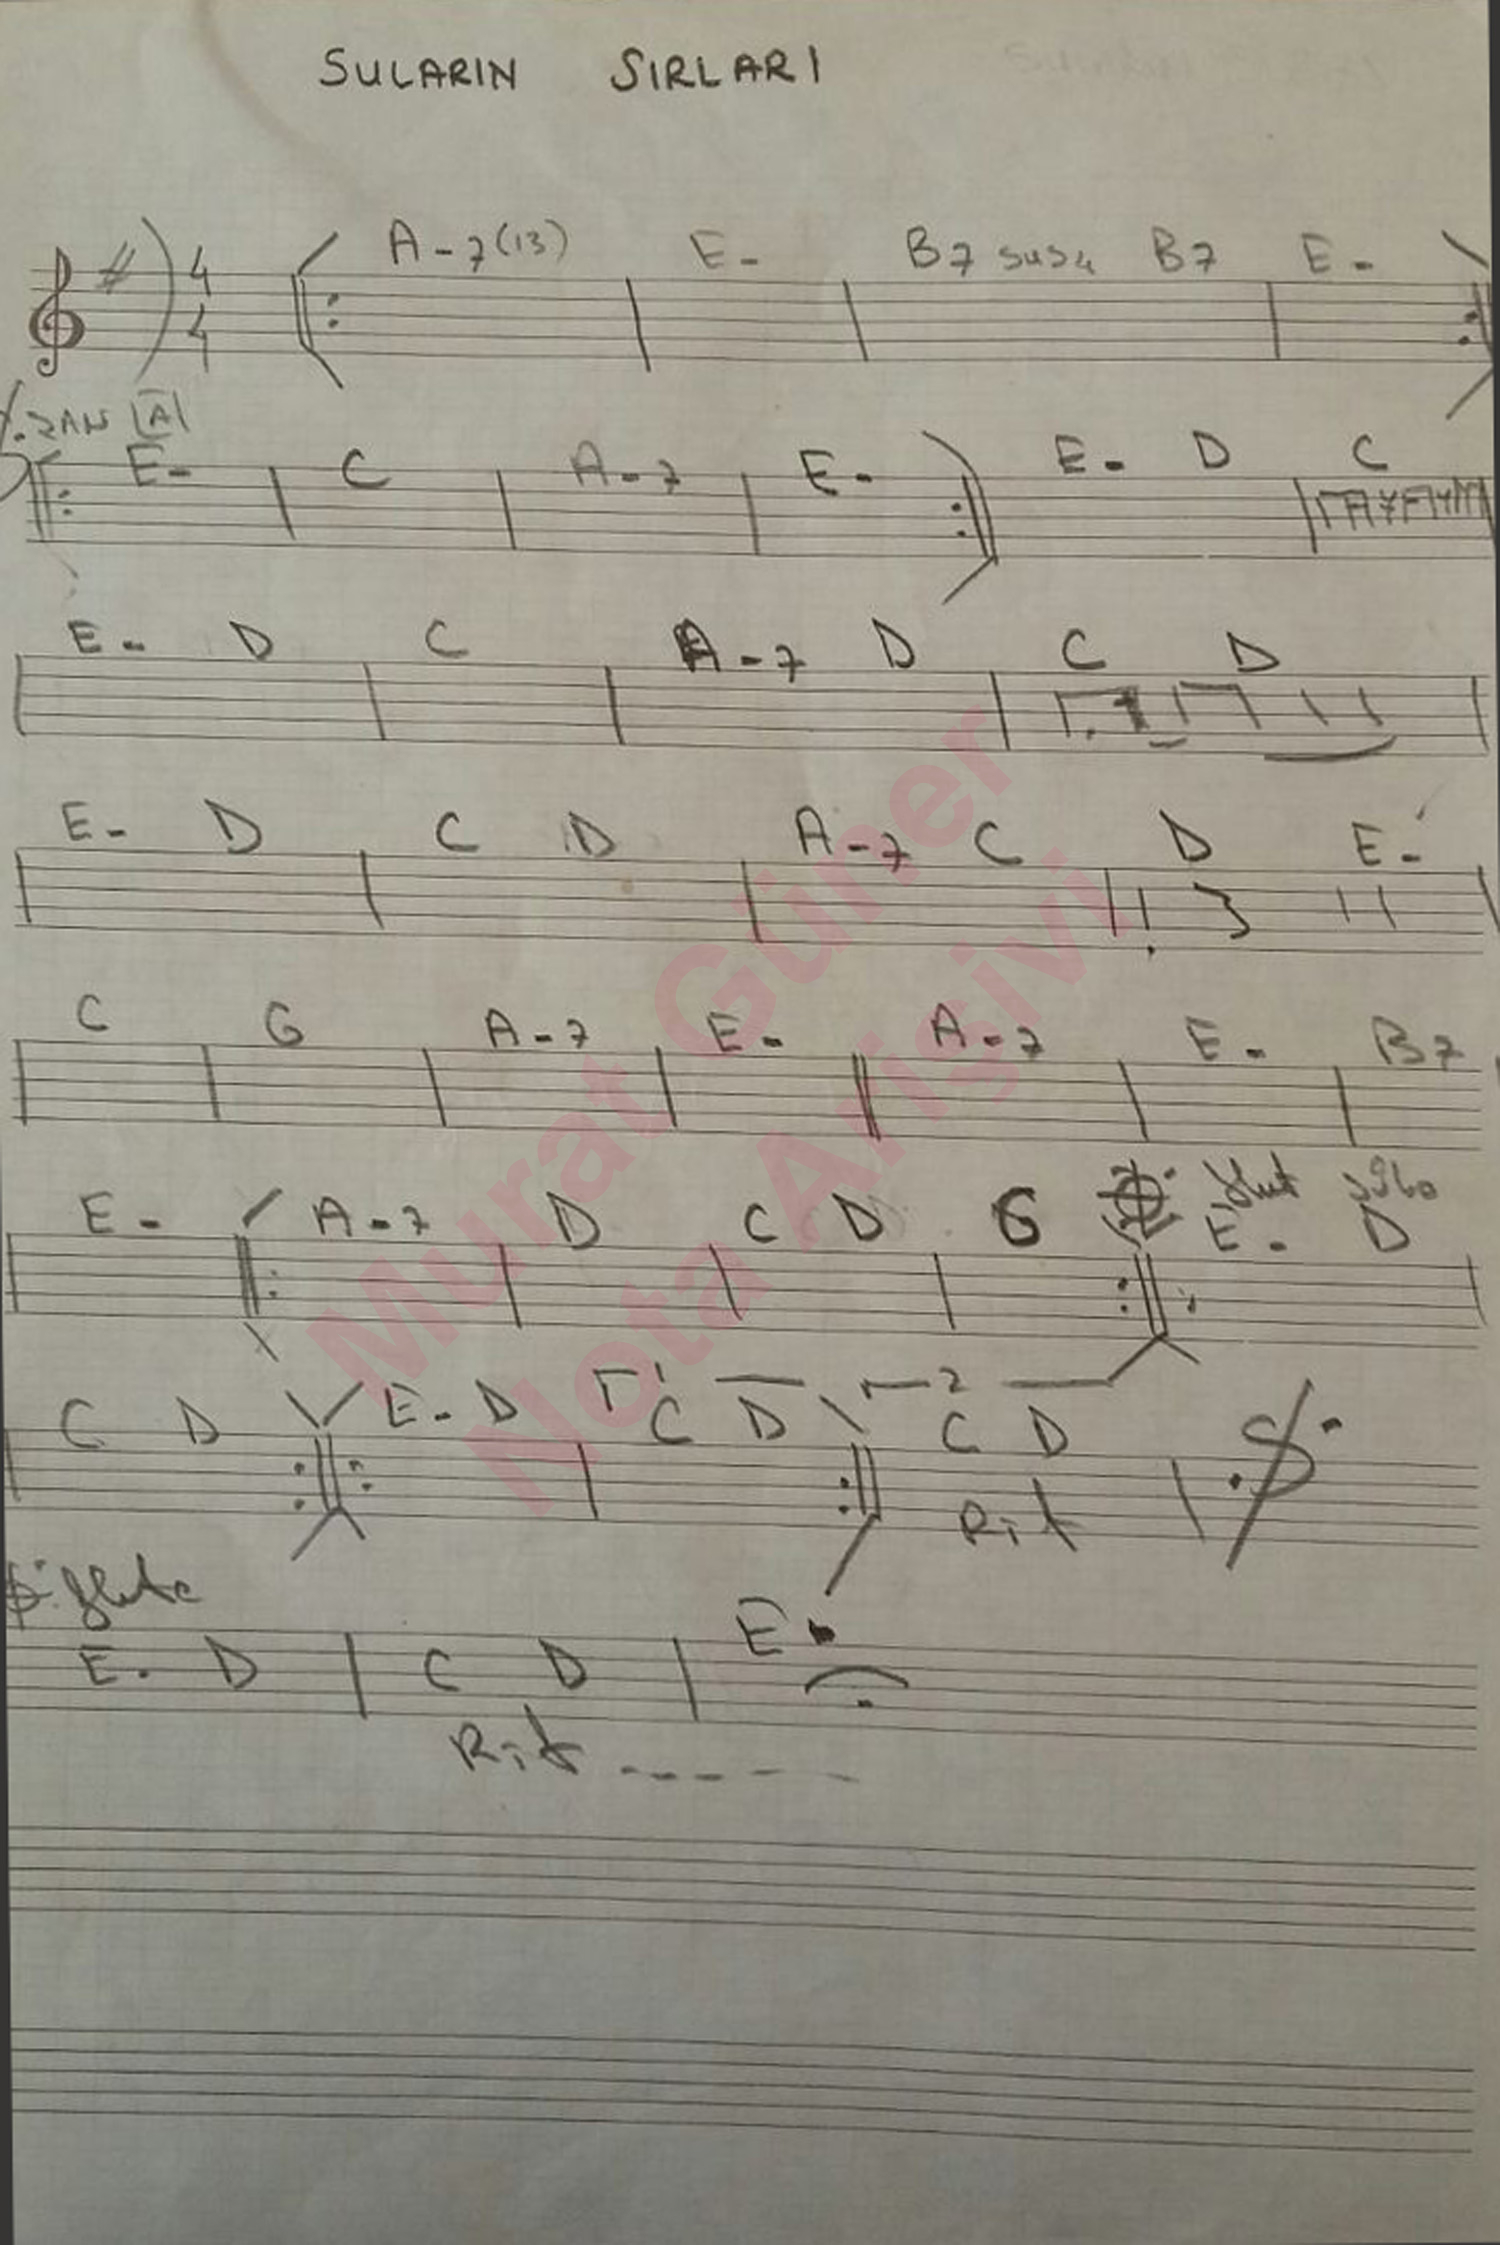 SULARIN SIRLARI
4
4
A-7(13) E- B7 sus4 B7 E-
A
E- C A-7 E- E- D C
E- D C A-7 D C D
E- D C D A-7 C D E-
C G A-7 E- A-7 E- B7
flut solo
E- A-7 D C D G E- D
1 2
C D E- D C D C D
Rit
flute
E- D C D E-
Rit -----
Murat Güner
Nota Arişivi